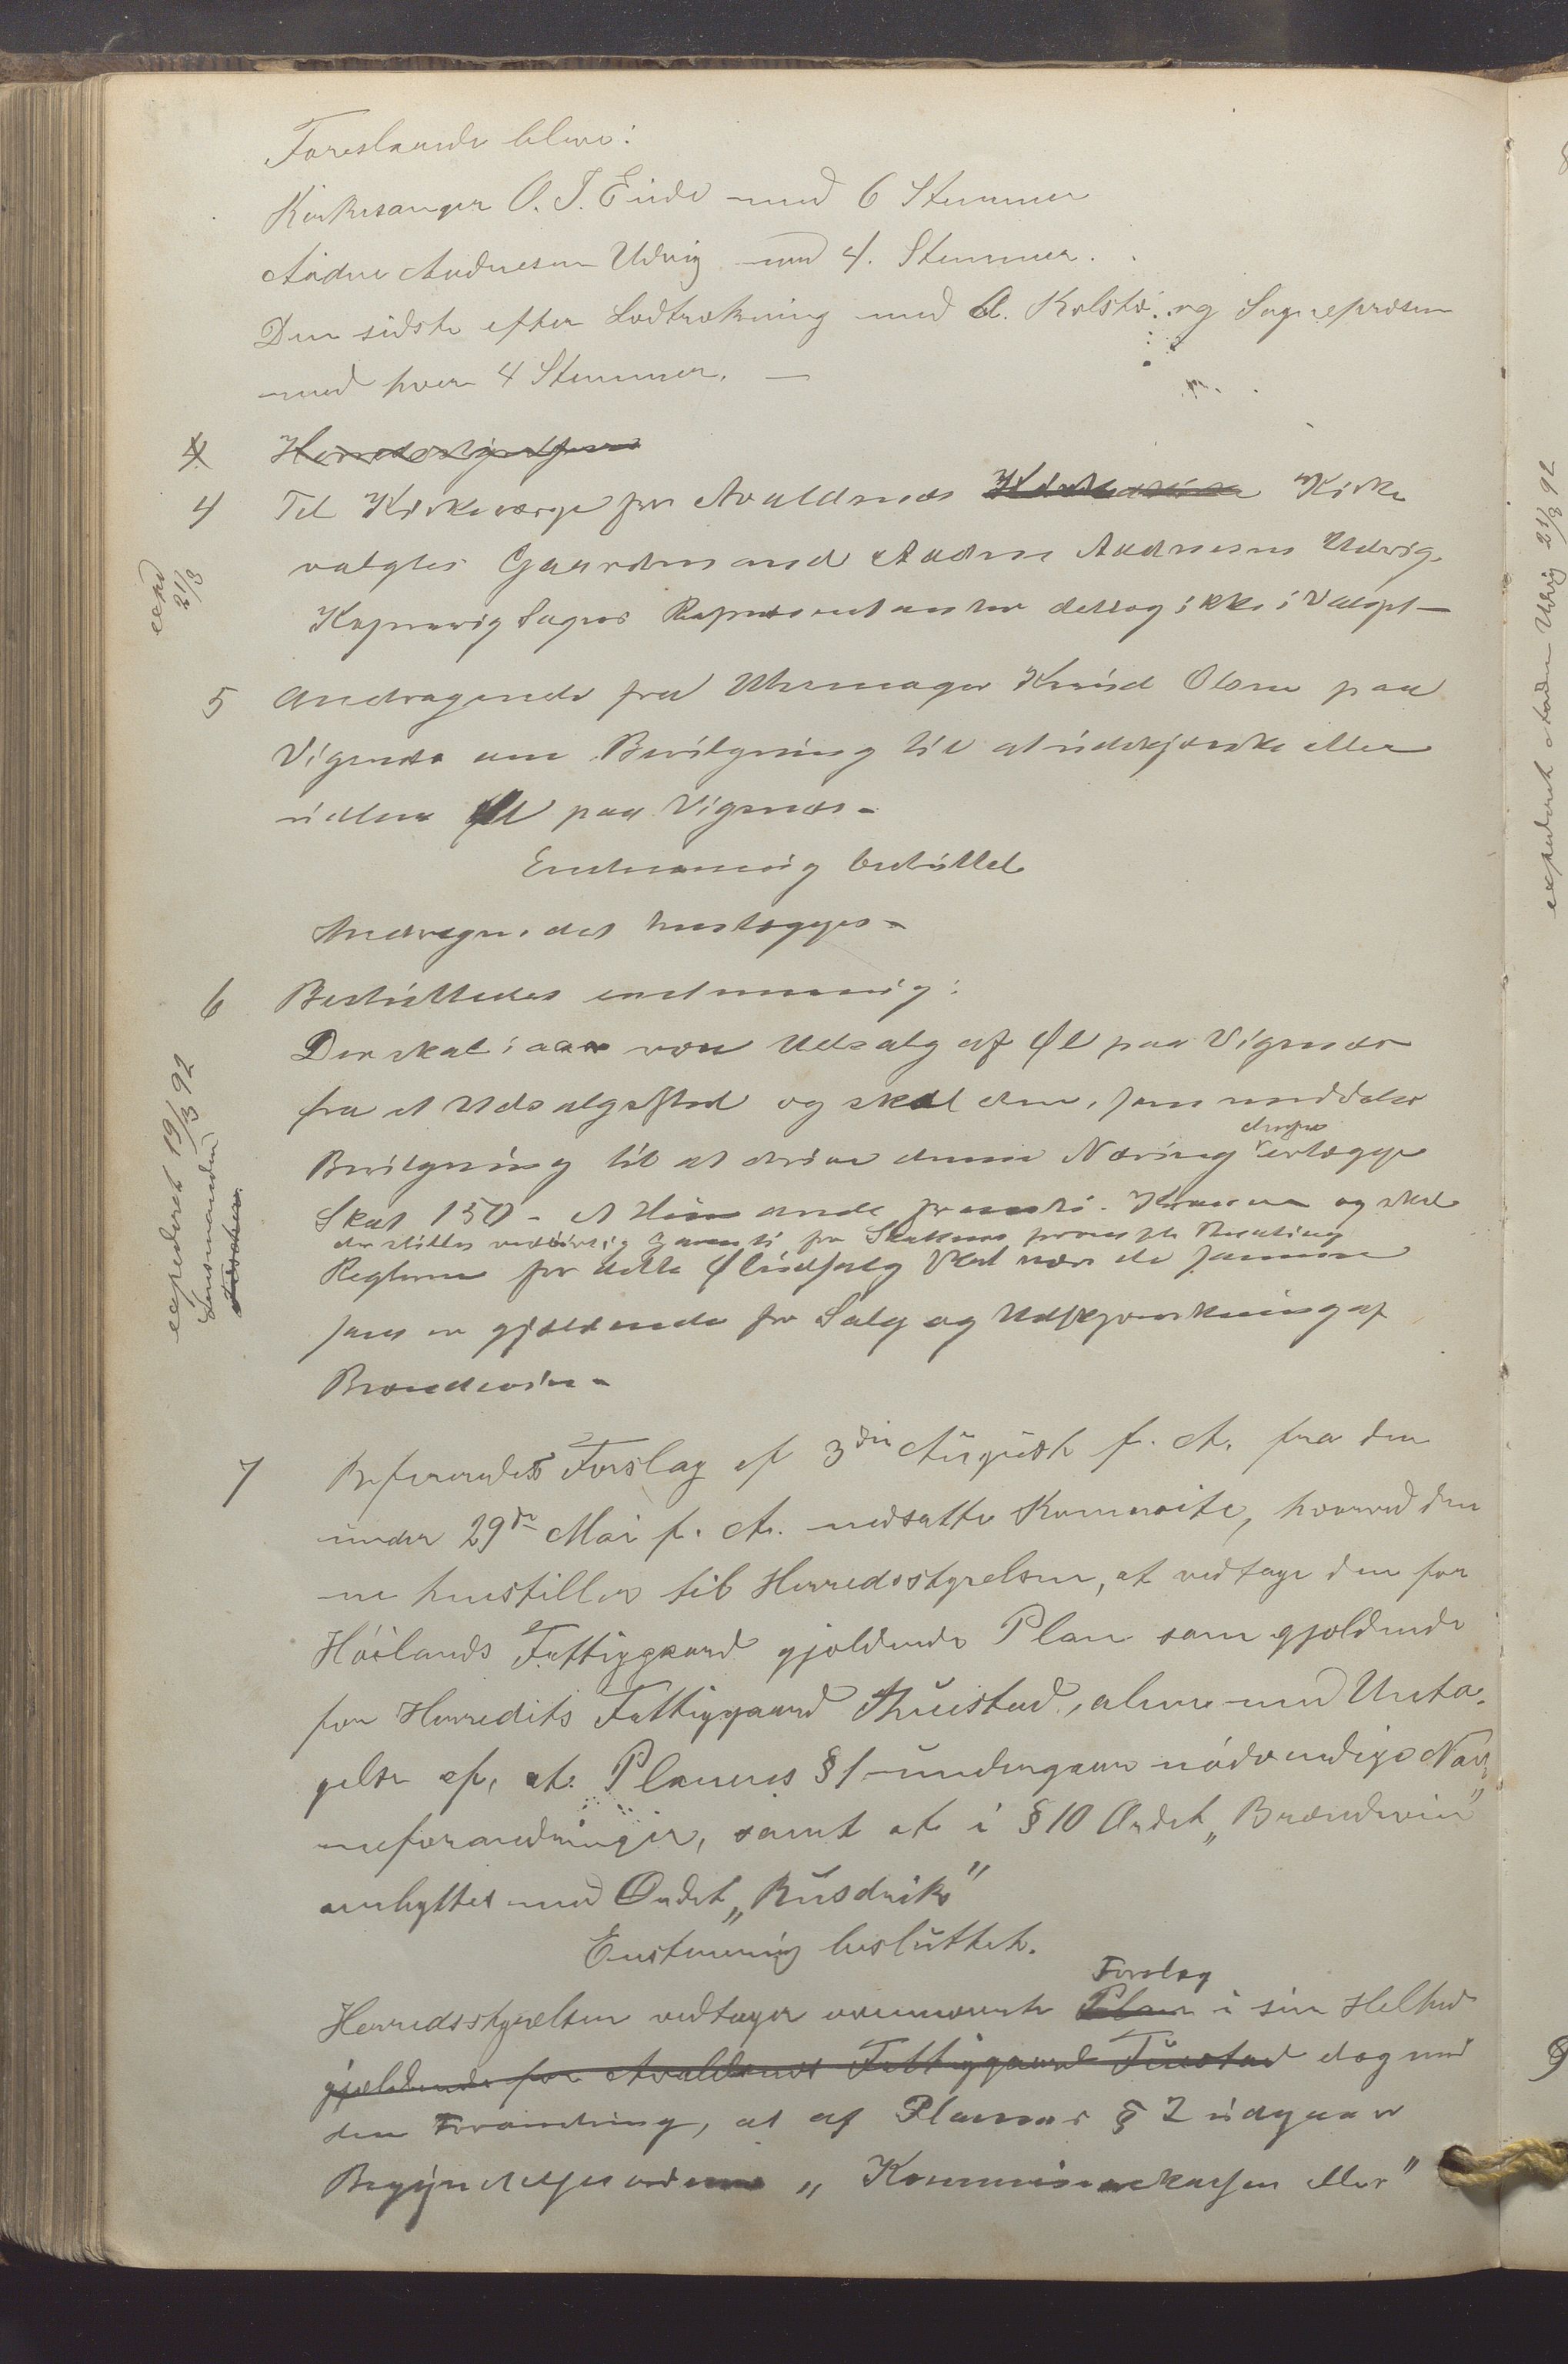 Foreslaaede bleve:
Kirkesanger O. T. Eide med 6 Stemmer
Aadne Aadnesen Udvig med 4. Stemmer.
Den sidste efter Lodtrækning med A. Kolstø. og
med hver 4 Stemmer. —
4 Herredsstyrelsen
4 Til Kirkeværge for Avaldsnæs Kirke
valgtes Gaardmand Aadne Aadnesen Udvig.
Kopervig Sogns Repræsentanter deltog ikke i Valget —
expd 21/3
5 Andragende fra Uhrmager Knud Olsen paa
Vigsnæs om Bevilgning til at udskjænke eller
udelne Øl paa Vigsnæs -
Enstemmig besluttet
Andragendet henlægges -
6 Besluttedes enstemmig:
Der skal i aar være Udsalg af Øl paa Vigsnæs
fra et Udsalgssted og skal den, som meddeles
Bevilgning til at drive denne Næring derfor erlægge
Skat 150 - et Hundrede femti - Kroner og skal
der stilles vederhæftig Garanti for Skattens prompte Betaling
Reglerne for dette Øludsalg skal være de samme
som er gjældende for Salg og Udskjænkning af
Brændevin -
expederet 19/3 92
Lensmanden
7 Refereredes Forslag af 3die August f. A. fra den
under 29de Mai f. A. nedsatte Kommite, hvorved den
ne henstiller til Herredsstyrelsen, at vedtage den for
Høilands Fattiggaard gjældende Plan som gjældende
for Herredets Fattiggaard Tuestad, alene med Unta-
gelse af, at Planens § 1 undergaar nødvendige Nav-
neforandringer, samt at i § 10 Ordet „Brændevin"
ombyttes med Ordet „Rusdrik"
Enstemmig besluttet.
Herredsstyrelsen vedtager ovennævnte Plan Forslag i sin Helhed
gjældende for Avaldsnæs Fattiggaard Tuestad dog med
den Forandring, at af Planens § 2 udgaar
Begyndelsesordene „Kommunekassen eller"
expederet Aadne Udvig 21/3 92